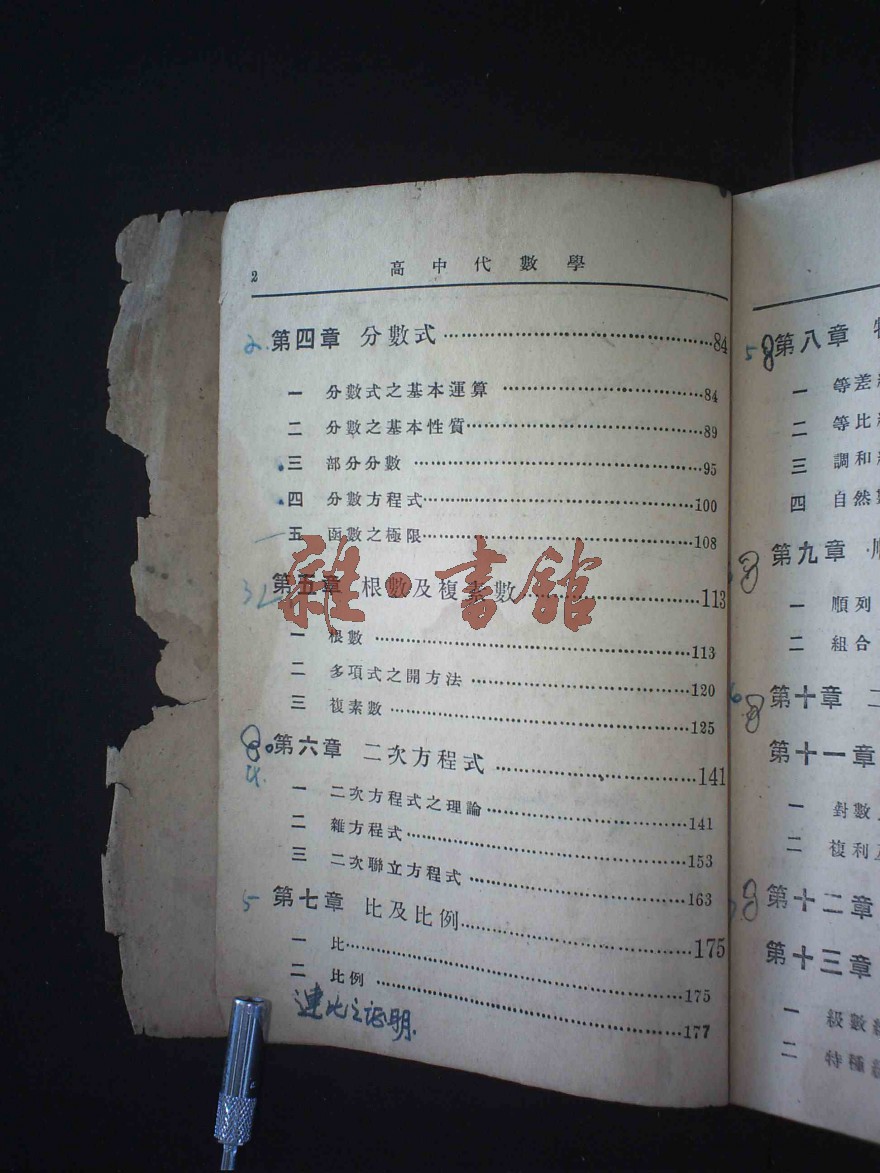 2 高中代數學
2. 第四章 分數式 84
一 分數式之基本運算 84
二 分數之基本性質 89
三 部分分數 95
四 分數方程式 100
五 函數之極限 108
第五章 根數及複素數 113
雜·書館
一 根數 113
二 多項式之開方法 120
三 複素數 125
第六章 二次方程式 141
4.
一 二次方程式之理論 141
二 雜方程式 153
三 二次聯立方程式 163
5 第七章 比及比例 175
一 比 175
二 比例 177
連比之証明.
5 8 第八章
一 等差
二 等比
三 調和
四 自然
第九章
一 順列
二 組合
6 8 第十章
第十一章
一 對數
二 複利
8 第十二章
第十三章
一 級數
二 特種